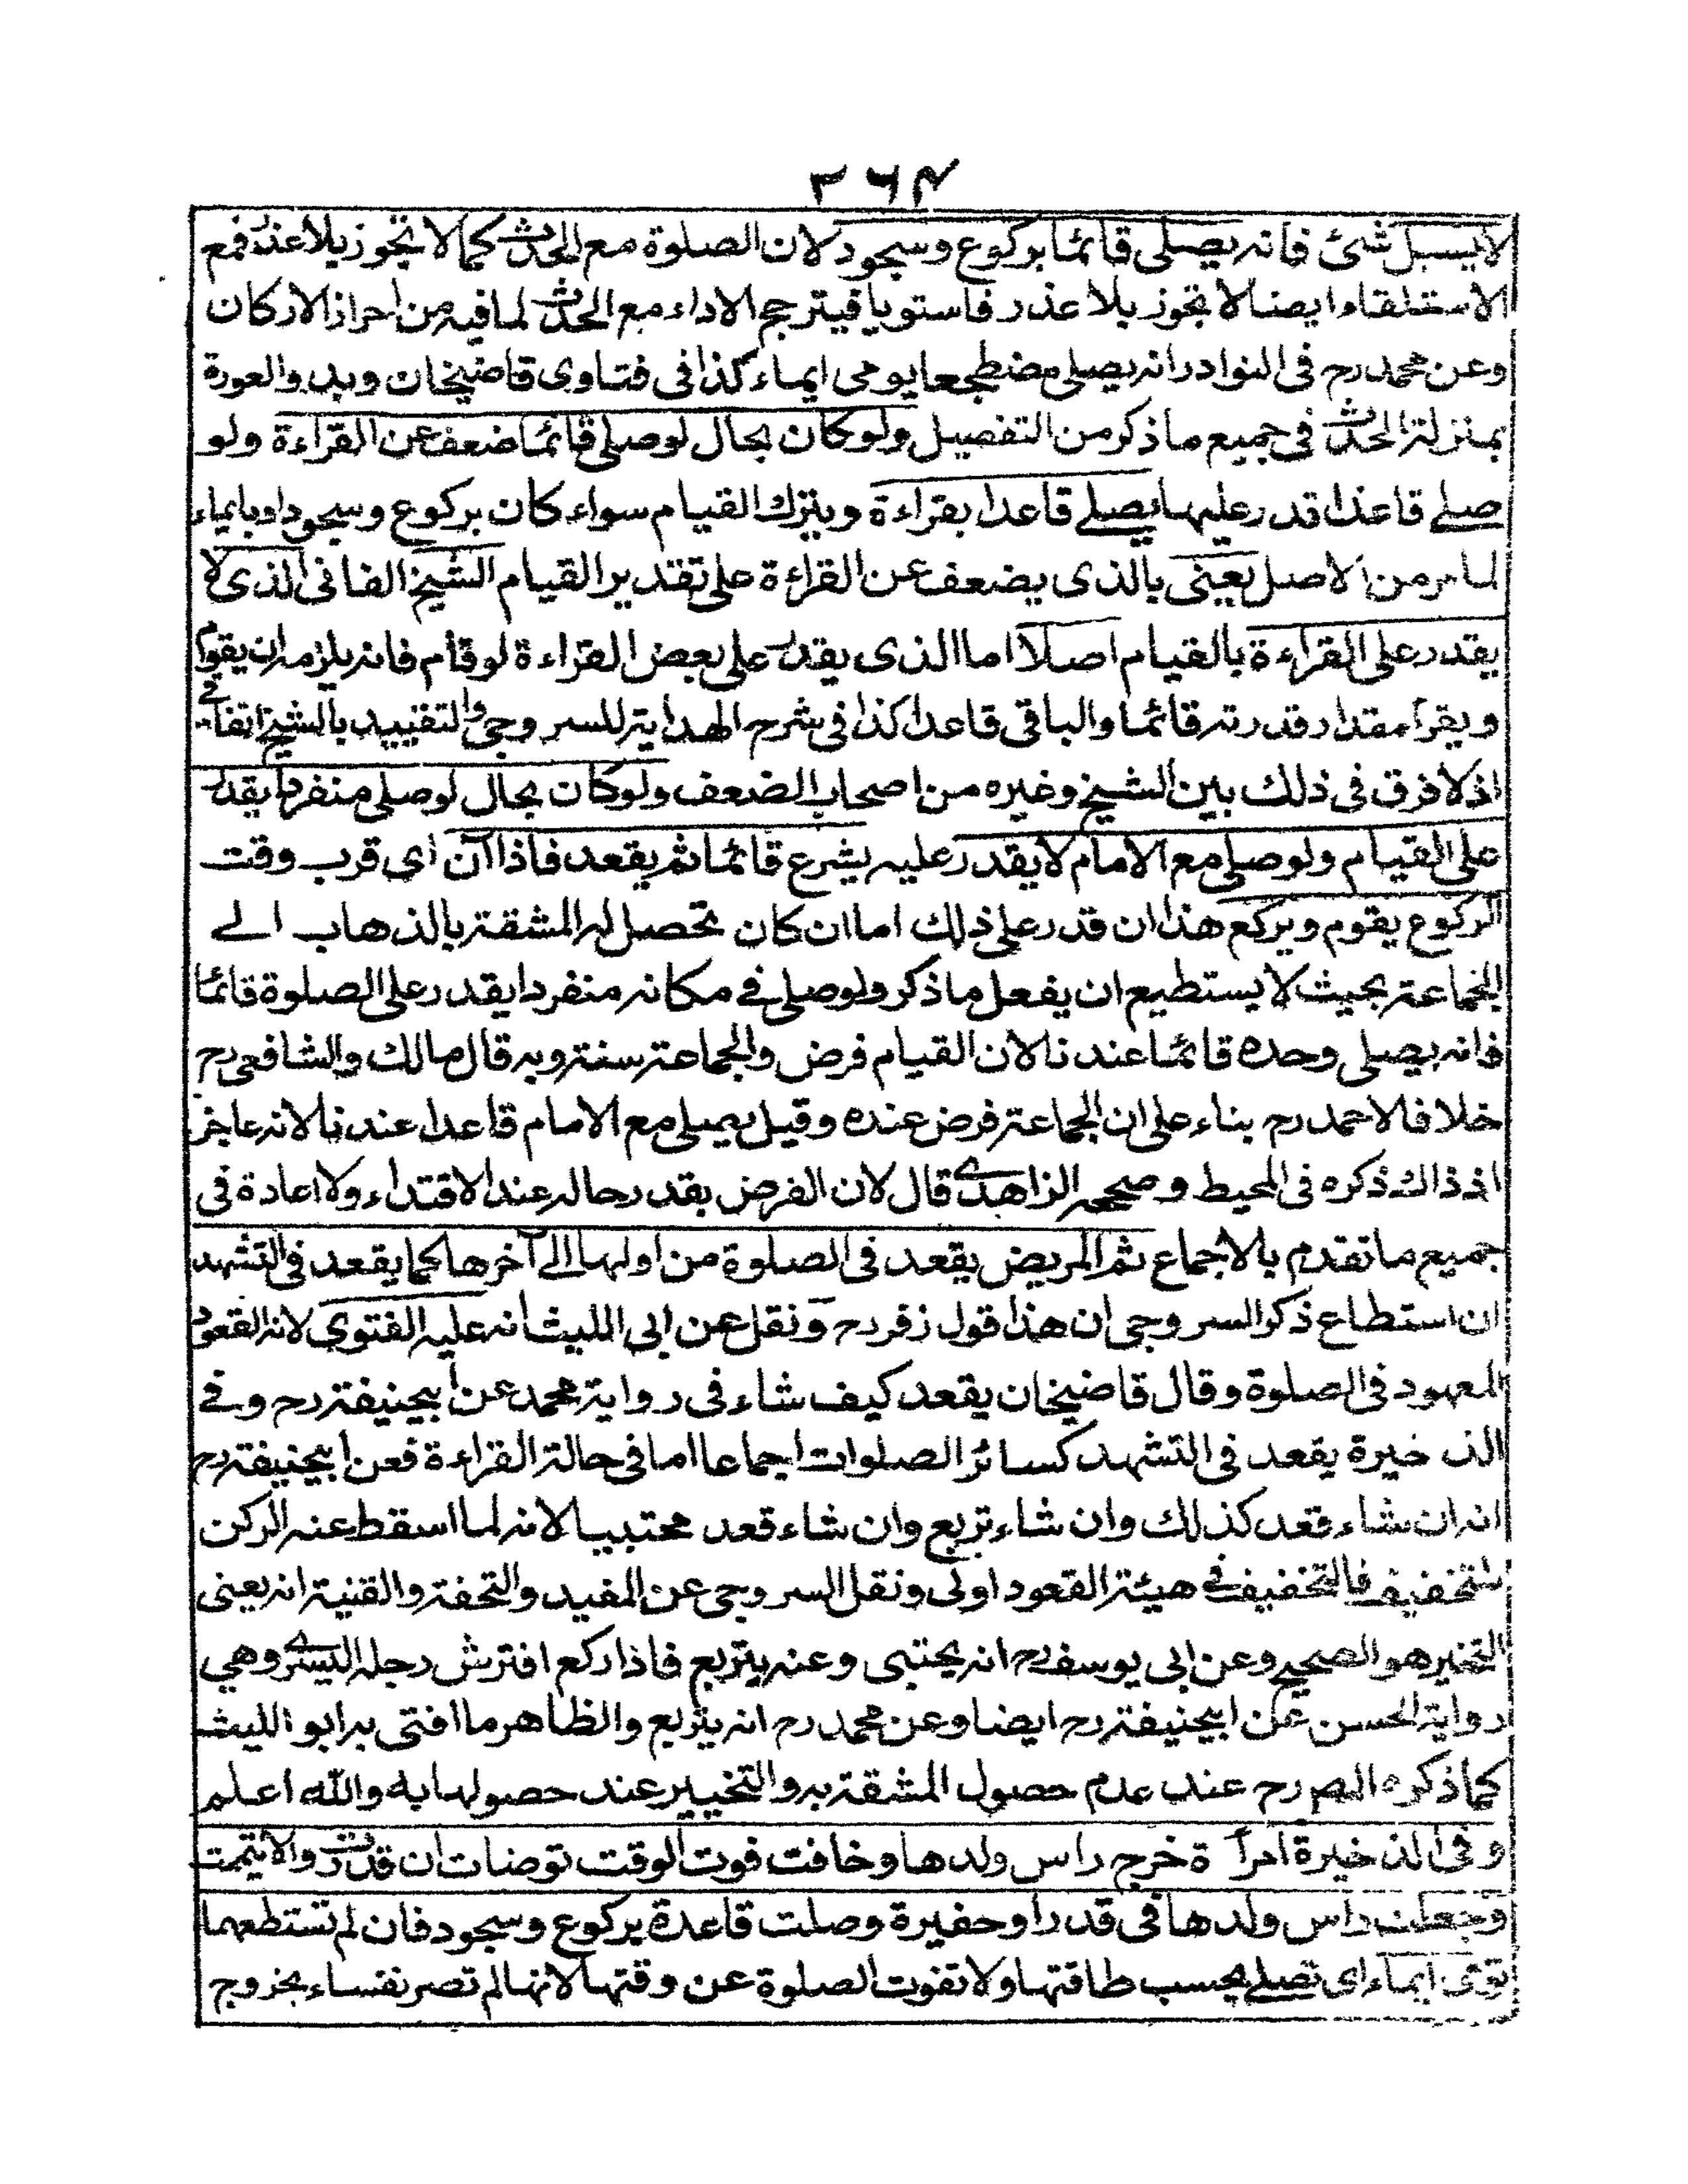 ٣٦٤
لا يسيل شئ فانه يصلى قائما بركوع وسجود لان الصلوة مع الحدث كما لا تجوز بلا عذر فمع
الاستلقاء ايضا لا تجوز بلا عذر فاستويا فيترجح الاداء مع الحدث لما فيه من احراز الاركان
وعن محمد رح فى النوادر انه يصلى مضطجعا يومى ايماء كذا فى فتاوى قاضيخان وبدو العورة
بمنزلة الحدث فى جميع ما ذكر من التفصيل ولو كان بحال لو صلى قائما ضعف عن القراءة ولو
صلے قاعدا قدر عليها يصلے قاعدا بقراءة ويترك القيام سواء كان بركوع وسجود او بايماء
لما مر من الاصل يعنى بالذى يضعف عن القراءة على تقدير القيام الشيخ الفانى الذى لا
يقدر على القراءة بالقيام اصلا اما الذى يقدر على بعض القراءة لو قام فانه يلزمه ان يقوم
ويقرا مقدار قدرته قائما والباقى قاعدا كذا فى شرح الهداية للسروجى والتقييد بالشيخ اتفاقے
اذ لا فرق فى ذلك بين الشيخ وغيره من اصحاب الضعف ولو كان بحال لو صلى منفردا يقدر
على القيام ولو صلى مع الامام لا يقدر عليه يشرع قائما ثم يقعد فاذا آن اى قرب وقت
الركوع يقوم ويركع هذا ان قدر على ذلك اما ان كان تحصل له المشقة بالذهاب الے
الجماعة بحيث لا يستطيع ان يفعل ما ذكر ولو صلى فے مكانه منفردا يقدر على الصلوة قائما
فانه يصلى وحده قائما عندنا لان القيام فرض والجماعة سنة وبه قال مالك والشافعى رح
خلافا لاحمد رح بناء على ان الجماعة فرض عنده وقيل يصلى مع الامام قاعدا عندنا لانه عاجز
اذ ذاك ذكره فى المحيط وصححه الزاهدے قال لان الفرض بقدر حاله عند الاقتداء ولا اعادة فى
جميع ما تقدم بالاجماع ثم المريض يقعد فى الصلوة من اولها الى آخرها كما يقعد فى التشهد
ان استطاع ذكر السروجى ان هذا قول زفر رح ونقل عن ابى الليث انه عليه الفتوى لانه القعود
المعهود فى الصلوة وقال قاضيخان يقعد كيف شاء فى رواية محمد عن ابيحنيفة رح وفے
الذخيرة يقعد فى التشهد كسائر الصلوات اجماعا اما فى حالة القراءة فعن ابيحنيفة رح
انه ان شاء قعد كذلك وان شاء تربع وان شاء قعد محتبيا لانه لما اسقط عنه الركن
للتخفيف فالتخفيف فے هيئة القعود اولى ونقل السروجى عن المفيد والتحفة والقنية انه يعنى
التخير هو الصحيح وعن ابى يوسف رح انه يحتبى وعنه يتربع فاذا ركع افترش رجله اليسرے وهى
رواية الحسن عن ابيحنيفة رح ايضا وعن محمد رح انه يتربع والظاهر ما افتى به ابو الليث
كما ذكره المص رح عند عدم حصول المشقة به والتخيير عند حصولها به والله اعلم
وفى الذخيرة امراة خرج راس ولدها وخافت فوت الوقت توضات ان قدرت والا تيممت
وجعلت راس ولدها فى قدر او حفيرة وصلت قاعدة بركوع وسجود فان لم تستطعهما
تومى ايماء اى تصلے بحسب طاقتها ولا تفوت الصلوة عن وقتها لانها لم تصر نفساء بخروج